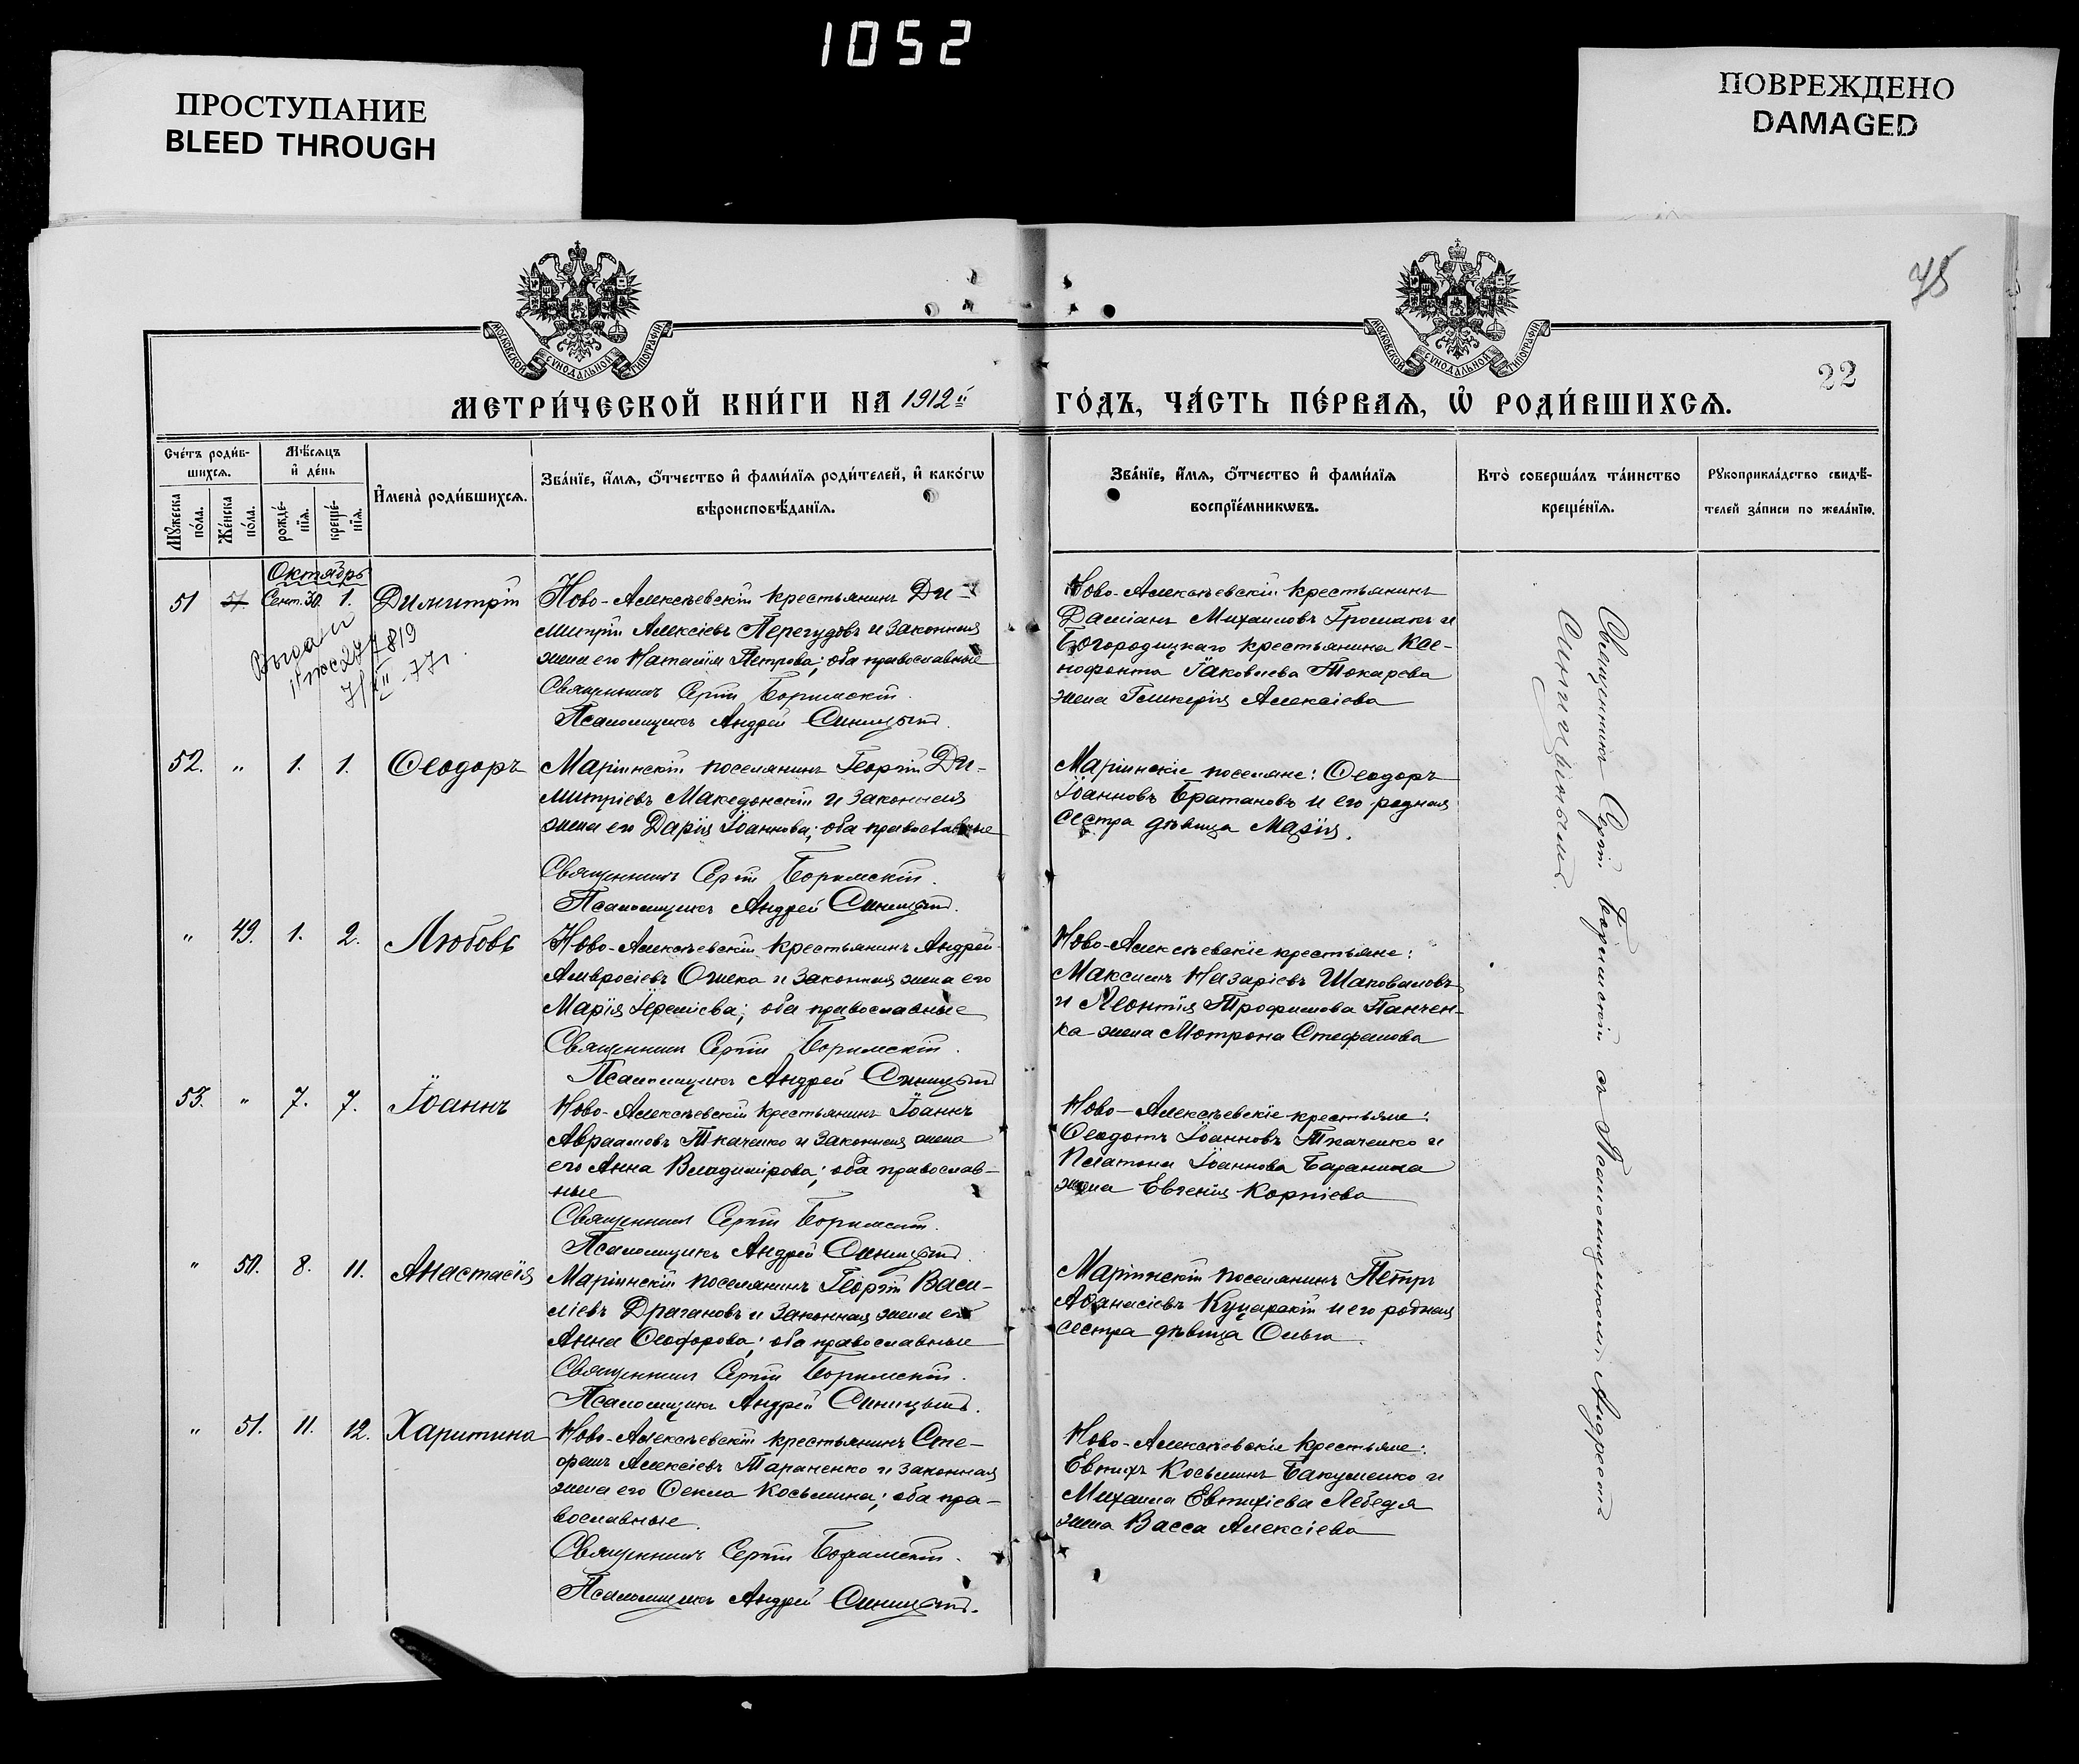 1052
ПРОСТУПАНИЕ
BLEED THROUGH
ПОВРЕЖДЕНО
DAMAGED
МОСКОВСКОЙ СѴНОДАЛЬНОЙ ТИПОГРАФІИ
МОСКОВСКОЙ СѴНОДАЛЬНОЙ ТИПОГРАФІИ
22
МЕТРИ́ЧЕСКОЙ КНИ́ГИ НА 1912й
ГО́ДЪ, ЧА́СТЬ ПЕ́РВАѦ, Ѡ҆ РОДИ́ВШИХСѦ.
Сче́тъ роди́в-
шихсѧ.
Мꙋ́жеска
по́ла.
Же́нска
по́ла.
Мѣ́сѧцъ
и҆ де́нь
рожде́-
нїѧ.
креще́-
нїѧ.
И҆мена̀ роди́вшихсѧ.
Зва́нїе, и҆́мѧ, ѻ҆́тчество и҆ фами́лїѧ роди́телей, и҆ како́гѡ
вѣроисповѣ́данїѧ.
Зва́нїе, и҆́мѧ, ѻ҆́тчество и҆ фами́лїѧ
воспрїе́мникѡвъ.
Кто̀ соверша́лъ та́инство
креще́нїѧ.
Рꙋкоприкла́дство свидѣ́-
телей за́писи по жела́нїю.
Октябрь
51 51. Сент. 30. 1. Димитрій
Ново-Алексѣевскій крестьянинъ Ди-
митрій Алексіевъ Перегудовъ и законная
жена его Наталія Петрова; оба православные
Священникъ Сергій Боримскій.
Псаломщикъ Андрей Синицынъ.
Ново-Алексѣевскій крестьянинъ
Даміанъ Михаиловъ Громакъ и
Богородицкаго крестьянина Ксе-
нофонта Іаковлева Токарева
жена Гликерія Алексіева
52. " 1. 1. Ѳеодоръ
Маріинскій поселянинъ Георгій Ди-
митріевъ Македонскій и законная
жена его Дарія Іоаннова; оба православные
Священникъ Сергій Боримскій.
Псаломщикъ Андрей Синицынъ.
Маріинскіе поселяне: Ѳеодоръ
Іоанновъ Братановъ и его родная
сестра дѣвица Марія.
" 49. 1. 2. Любовь
Ново-Алексѣевскій крестьянинъ Андрей
Амвросіевъ и законная жена его
Марія Іереміева; оба православные
Священникъ Сергій Боримскій.
Псаломщикъ Андрей Синицынъ
Ново-Алексѣевскіе крестьяне:
Максимъ Назаріевъ Шаповаловъ
и Леонтія Трофимова Панчен-
ка жена Мотрона Стефанова
53. " 7. 7. Іоаннъ
Ново-Алексѣевскій крестьянинъ Іоаннъ
Авраамовъ Ткаченко и законная жена
его Анна Владимірова; оба православ-
ные
Священникъ Сергій Боримскій.
Псаломщикъ Андрей Синицынъ.
Ново-Алексѣевскіе крестьяне:
Ѳеодотъ Іоанновъ Ткаченко и
Платона Іоаннова Баранника
жена Евгенія Корніева
" 50. 8. 11. Анастасія
Маріинскій поселянинъ Георгій Васи-
ліевъ Драгановъ и законная жена его
Анна Ѳеодорова; оба православные
Священникъ Сергій Боримскій.
Псаломщикъ Андрей Синицынъ.
Маріинскій поселянинъ Петръ
Аѳанасіевъ и его родная
сестра дѣвица Ольга.
" 51. 11. 12. Харитина
Ново-Алексѣевскій крестьянинъ Сте-
фанъ Алексіевъ Тараненко и законная
жена его Ѳекла Косьмина; оба пра-
вославные.
Священникъ Сергій Боримскій.
Псаломщикъ Андрей Синицынъ.
Ново-Алексѣевскіе крестьяне:
Евтихъ Косьминъ Бакуменко и
Михаила Евтихіева Лебедя
жена Васса Алексіева
Священникъ Сергій Боримскій съ Псаломщикомъ Андреемъ
Синицынымъ.